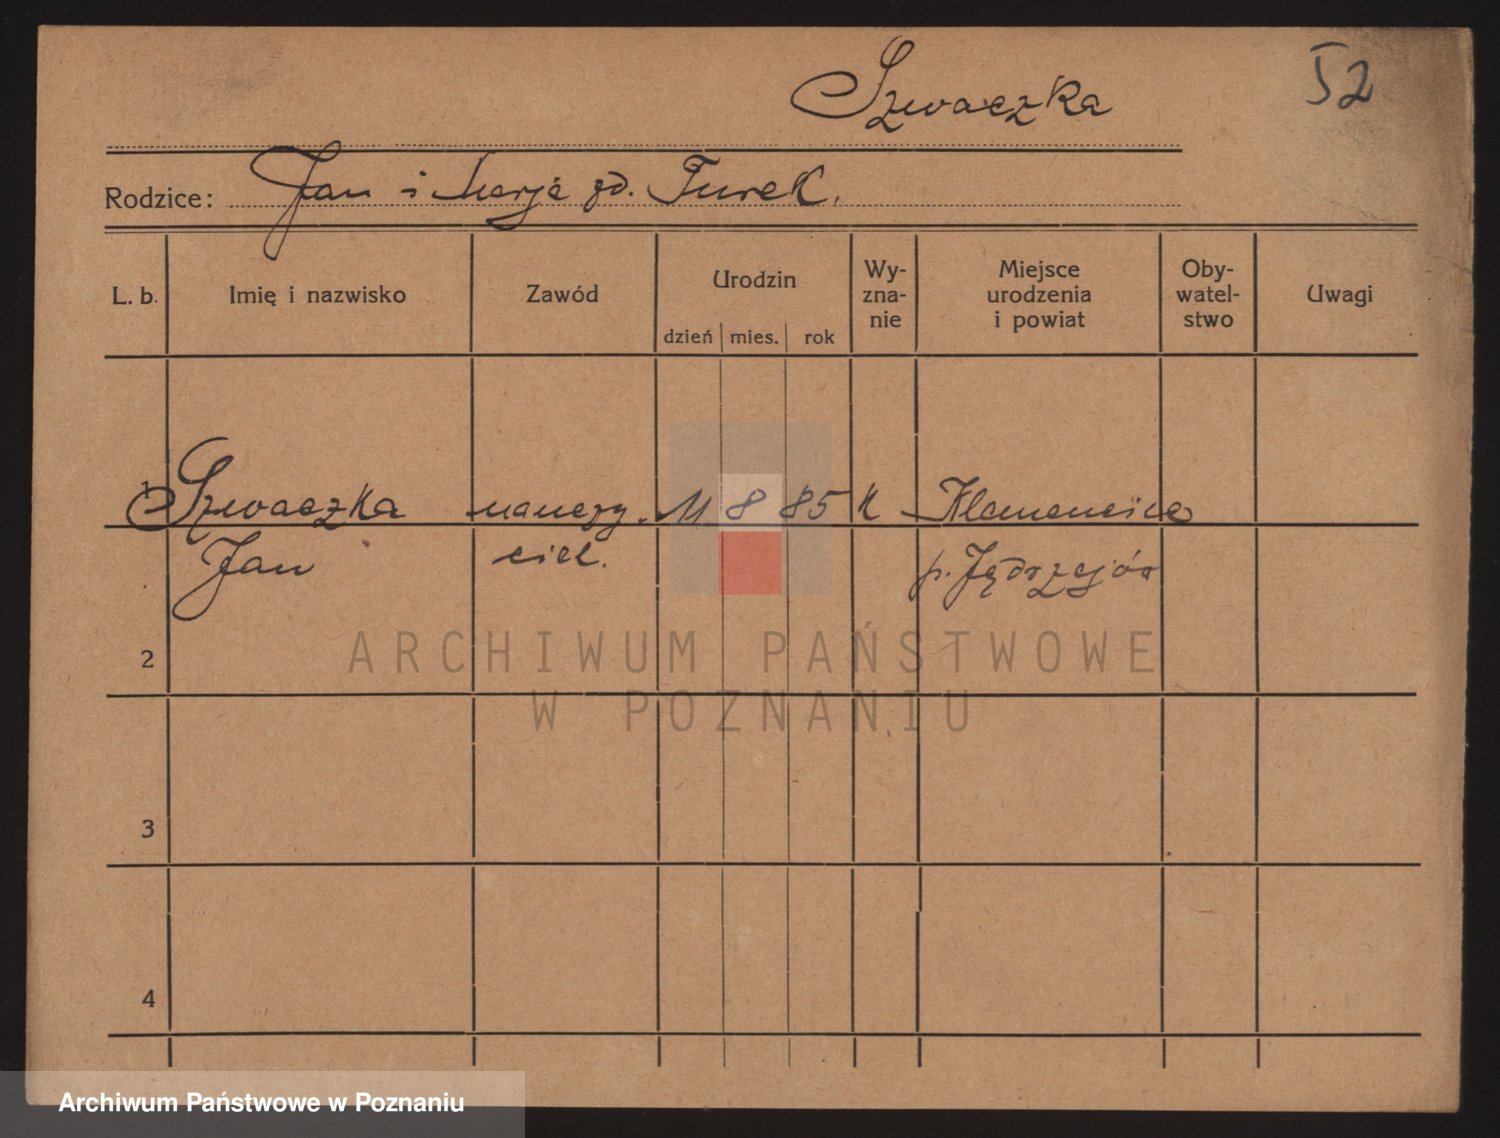 52
Szwaczka
Rodzice: Jan i Marja zd. Turek.
L. b. Imię i nazwisko Zawód Urodzin dzień mies. rok Wy-zna-nie Miejsce urodzenia i powiat Oby-watel-stwo Uwagi
1 Szwaczka nauczy. 11 8 85 K
Jan ciel. p. Jędrzejów
2
3
4
ARCHIWUM PAŃSTWOWE
W POZNANIU
Archiwum Państwowe w Poznaniu